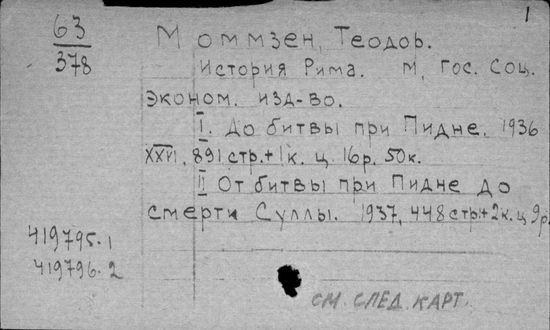 1
63
378
Моммзен, Теодор.
История Рима. М, Гос. соц.
эконом. изд-во.
I. До битвы при Пидне. 1936
XXVI, 891 стр.+1к. ц. 16р. 50к.
II От битвы при Пидне до
смерти Суллы. 1937, 448 стр+2к. ц 9р.
419795.1
419796.2
СМ. СЛЕД. КАРТ.